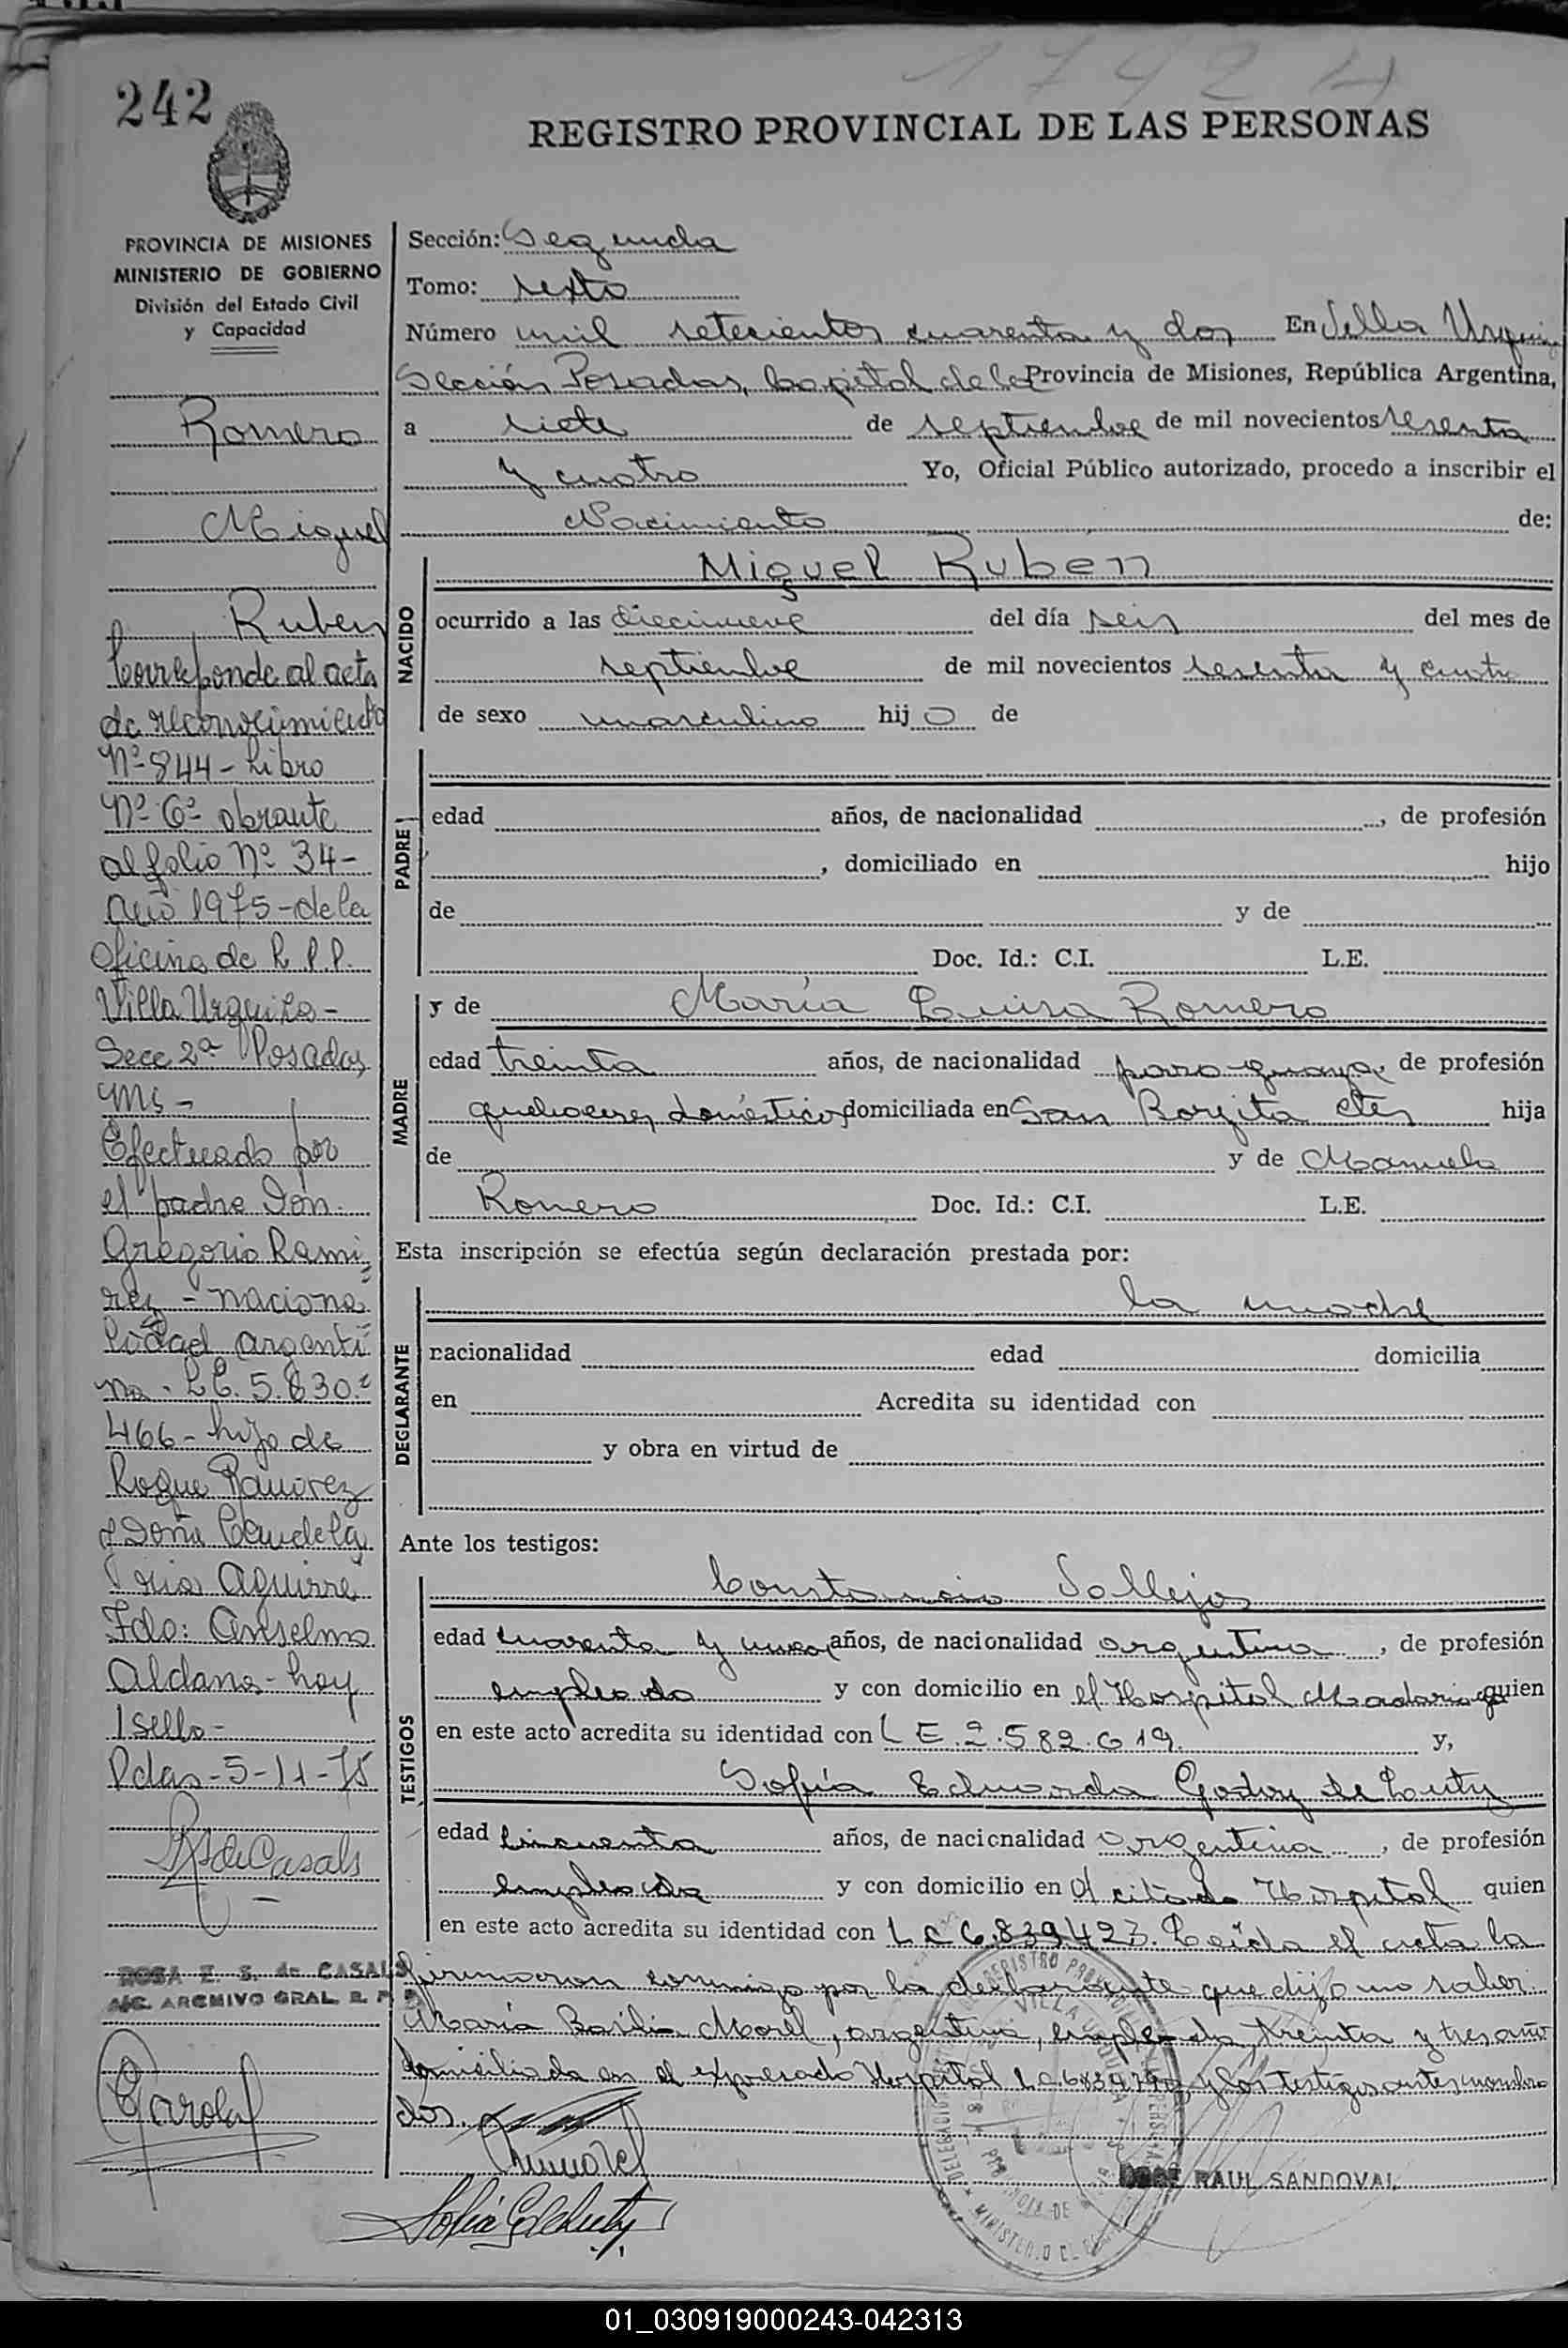 242
REGISTRO PROVINCIAL DE LAS PERSONAS
PROVINCIA DE MISIONES
MINISTERIO DE GOBIERNO
División del Estado Civil
y Capacidad
Romero
Miguel
Ruben
Corresponde al acta
de reconocimiento
Nº 844 - Libro
Nº 6º obrante
al folio Nº 34-
año 1975 - de la
Oficina de R.P.P.
Villa Urquiza-
Secc 2ª Posadas
Ms -
Efectuado por
el padre Don
Gregorio Rami
rez - naciona
lidad argenti
na - L.E. 5.830.
466 - hijo de
Roque Ramirez
y Doña Candela
ria Aguirre
Fdo: Anselmo
Aldana - hay
1 sello -
Pdas - 5-11-75
ROSA E. S. de CASALS
A/C. ARCHIVO GRAL. R. P. P.
Sección: Segunda
Tomo: sexto
Número mil setecientos cuarenta y dos En Villa Urquiza
Sección Posadas, Capital de la Provincia de Misiones, República Argentina,
a siete de septiembre de mil novecientos sesenta
y cuatro Yo, Oficial Público autorizado, procedo a inscribir el
Nacimiento de:
NACIDO
Miguel Ruben
ocurrido a las diecinueve del día seis del mes de
septiembre de mil novecientos sesenta y cuatro
de sexo masculino hijo de
PADRE
edad años, de nacionalidad , de profesión
, domiciliado en hijo
de y de
Doc. Id.: C.I. L.E.
MADRE
y de María Luisa Romero
edad treinta años, de nacionalidad paraguaya, de profesión
quehaceres domésticos domiciliada en San Borjita Ctes hija
de y de Manuela
Romero Doc. Id.: C.I. L.E.
Esta inscripción se efectúa según declaración prestada por:
DECLARANTE
la madre
nacionalidad edad domicilia
en Acredita su identidad con
y obra en virtud de
Ante los testigos:
TESTIGOS
Constancio Vallejos
edad cuarenta y años, de nacionalidad argentina, de profesión
empleado y con domicilio en el Hospital Madariaga quien
en este acto acredita su identidad con L E. 2.582.619. y,
Sofía Eduarda Godoy de Luty
edad cincuenta años, de nacionalidad argentina, de profesión
empleada y con domicilio en el citado Hospital quien
en este acto acredita su identidad con L C 6.839.423. Leída el acta la
firmaron conmigo por la declarante que dijo no saber
María Basilia Morel, argentina, empleada, treinta y tres años
domiciliada en el expresado Hospital L C y los testigos antes nombra
dos.
JOSE RAUL SANDOVAL
01_030919000243-042313